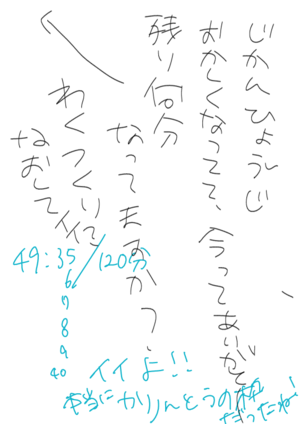 じかんひょうじ
おかしくなってて、今ってあいがと
残り何分
なってますか?
わくつくりに
なおしてイイ?
49:35/120分
6
7
8
9
40
イイよ!!
本当にかりんとうの枠
だったね!